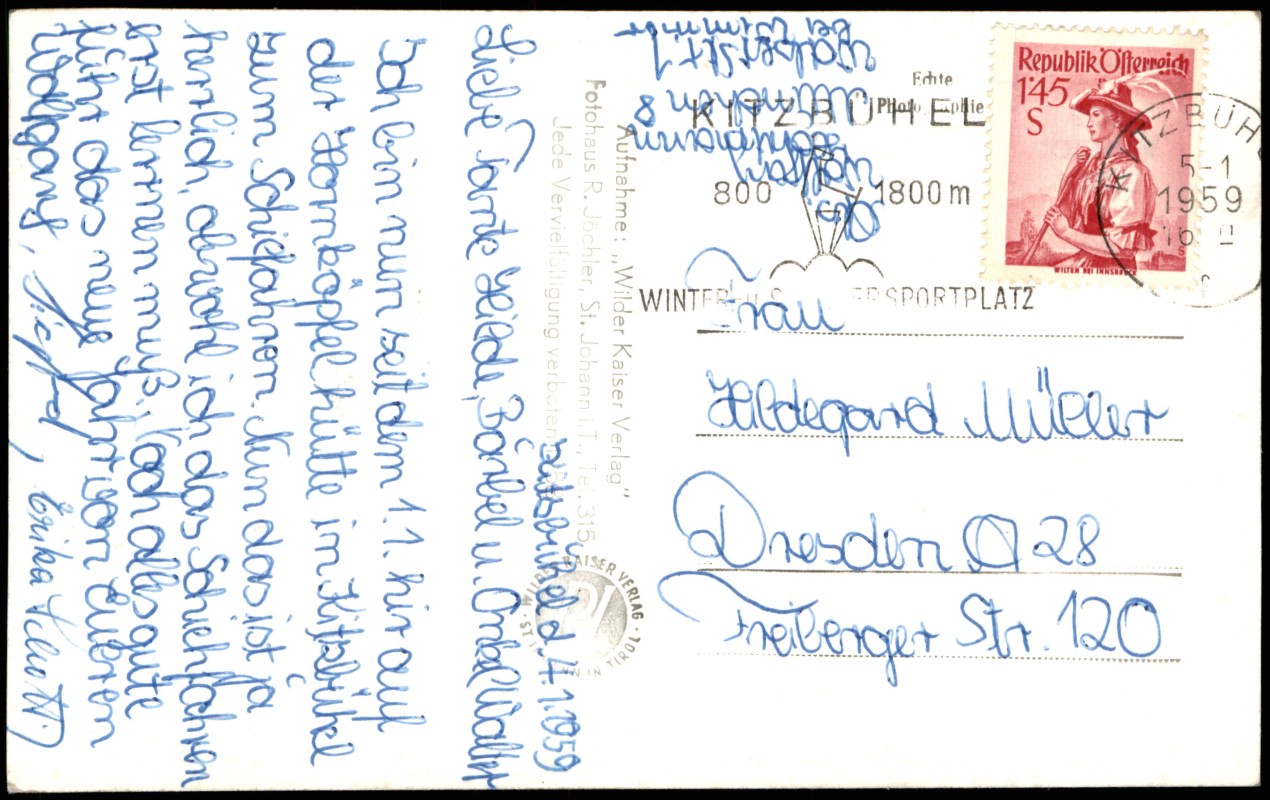 Kitzbühel d. 4.1.1959
Liebe Tante Hilde, Bärbel u. Onkel Walter
Ich bin nun seit dem 1.1. hir auf
der Hornköpfelhütte in Kitzbühel
zum Schiefahren. Nun das ist ja
herrlich, obwohl ich das Schiefahren
erst lernen muß. Noch alles gute
für das neue Jahr von Eueren
Wolfgang, Siegfried, Erika
Abs.
Wolfgang
München 8
bei Wimmer
Aufnahme: „Wilder Kaiser Verlag"
Fotohaus R. Jöchler, St. Johann i. T., Tel. 315
Jede Vervielfältigung verboten
WILDER KAISER VERLAG · ST. IN TIROL
Echte
Photographie
KITZBÜHEL
800 1800 m
WINTER- U. SOMMERSPORTPLATZ
Republik Österreich
1'45
S
WILTEN BEI INNSBRUCK
KITZBÜHEL
5-1
1959
16
Frau
Hildegard Müller
Dresden A 28
Freiberger Str. 120